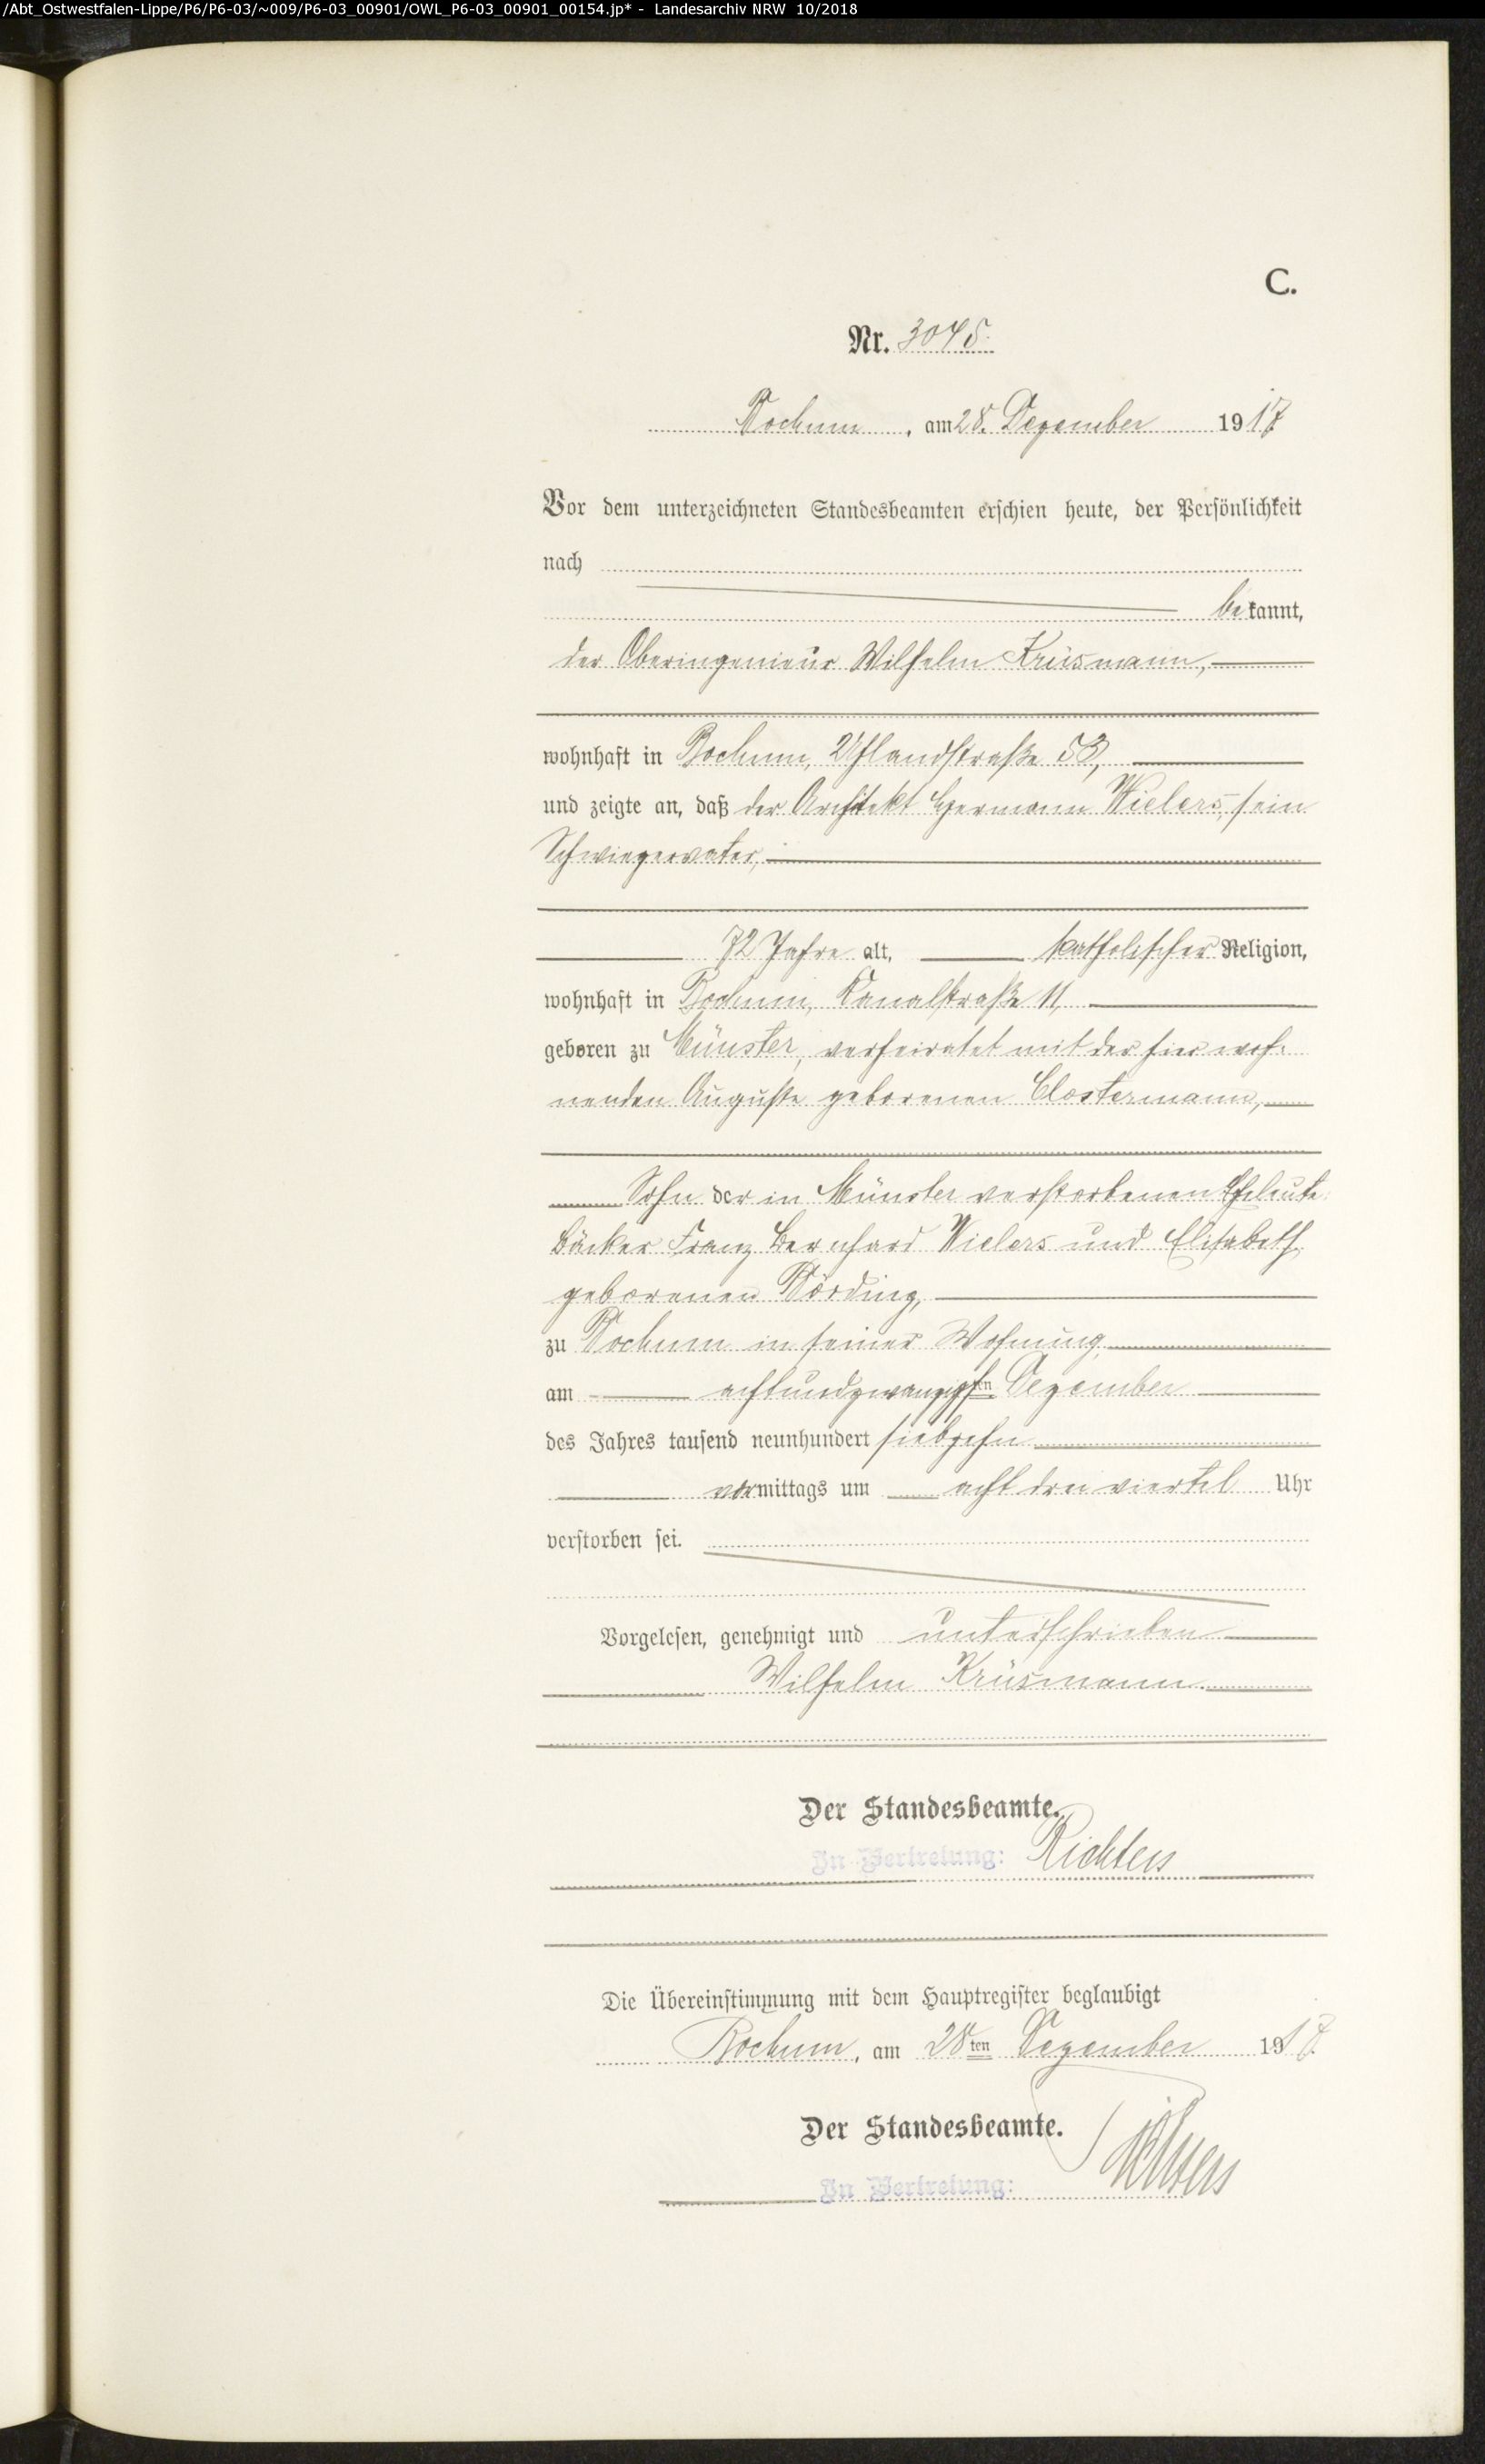 /Abt_Ostwestfalen-Lippe/P6/P6-03/~009/P6-03_00901/OWL_P6-03_00901_00154.jp* - Landesarchiv NRW 10/2018
C.
Nr. 3045.
Bochum, am 28. Dezember 1917
Vor dem unterzeichneten Standesbeamten erschien heute, der Persönlichkeit
nach
bekannt,
der Oberingenieur Wilhelm Krüsmann,
wohnhaft in Bochum, Uhlandstraße 53,
und zeigte an, daß der Architekt Hermann Wielers, sein
Schwiegervater,
72 Jahre alt, katholischer Religion,
wohnhaft in Bochum, Kanalstraße 11,
geboren zu Münster, verheiratet mit der hier woh-
nenden Auguste geborenen Clostermann,
Sohn der in Münster verstorbenen Eheleute
Bäcker Franz Bernhard Wielers und Elisabeth,
geborenen Börding,
zu Bochum in seiner Wohnung
am achtundzwanzigsten Dezember
des Jahres tausend neunhundert siebzehn
vormittags um acht drei viertel Uhr
verstorben sei.
Vorgelesen, genehmigt und unterschrieben
Wilhelm Krüsmann.
Der Standesbeamte.
In Vertretung: Richters
Die Übereinstimmung mit dem Hauptregister beglaubigt
Bochum, am 28ten Dezember 1917.
Der Standesbeamte.
In Vertretung: Richters